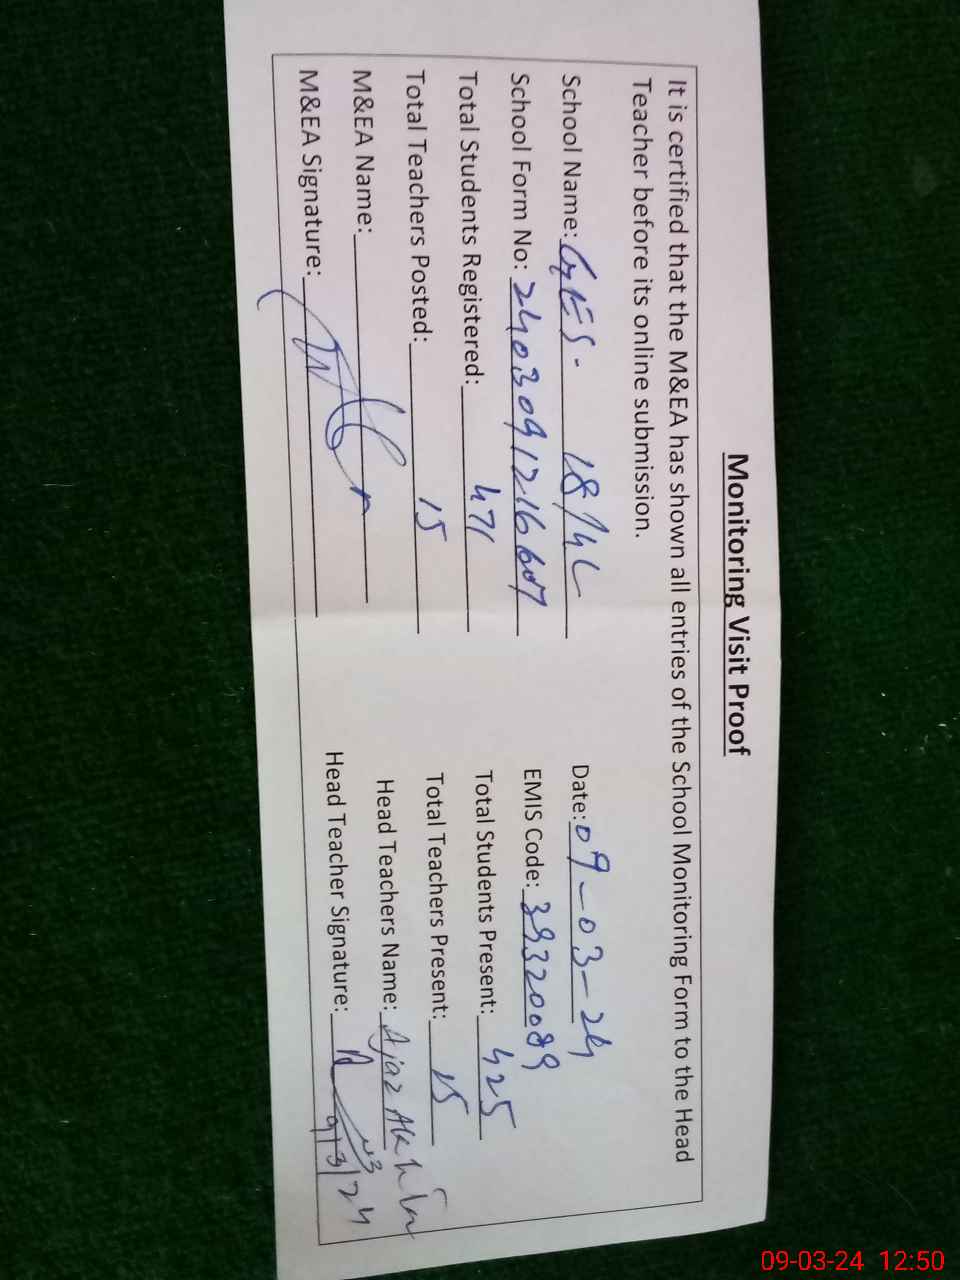 Monitoring Visit Proof
It is certified that the M&EA has shown all entries of the School Monitoring Form to the Head
Teacher before its online submission.
School Name: GES. 18/4L Date: 09-03-24
School Form No: 2403091216607 EMIS Code: 39320089
Total Students Registered: 471 Total Students Present: 425
Total Teachers Posted: 15 Total Teachers Present: 15
M&EA Name: Head Teachers Name: Ajaz
M&EA Signature: Head Teacher Signature:
9/3/24
09-03-24 12:50